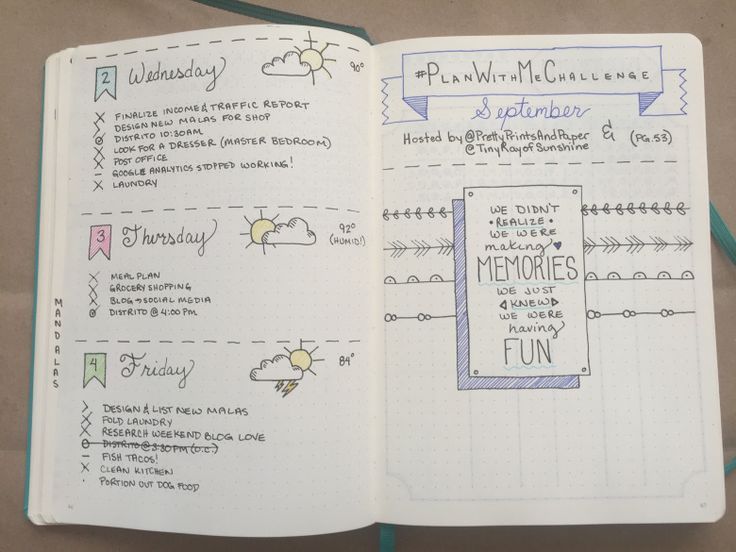 2 Wednesday
90°
X FINALIZE INCOME & TRAFFIC REPORT
> DESIGN NEW MALAS FOR SHOP
DISTRITO 10:30AM
X LOOK FOR A DRESSER (MASTER BEDROOM)
X POST OFFICE
– GOOGLE ANALYTICS STOPPED WORKING!
X LAUNDRY
3 Thursday
92°
(HUMID!)
X MEAL PLAN
X GROCERY SHOPPING
X BLOG → SOCIAL MEDIA
DISTRITO @ 4:00 PM
MANDALAS
4 Friday
84°
> DESIGN & LIST NEW MALAS
X FOLD LAUNDRY
X RESEARCH WEEKEND BLOG LOVE
DISTRITO @ 3:30 PM (O.C.)
– FISH TACOS!
X CLEAN KITCHEN
· PORTION OUT DOG FOOD
#PLANWITHMECHALLENGE
September
Hosted by @PrettyPrintsAndPaper & (PG.53)
@TinyRayofSunshine
WE DIDN'T
• REALIZE •
WE WERE
making ♥
MEMORIES
WE JUST
KNEW
WE WERE
having
FUN